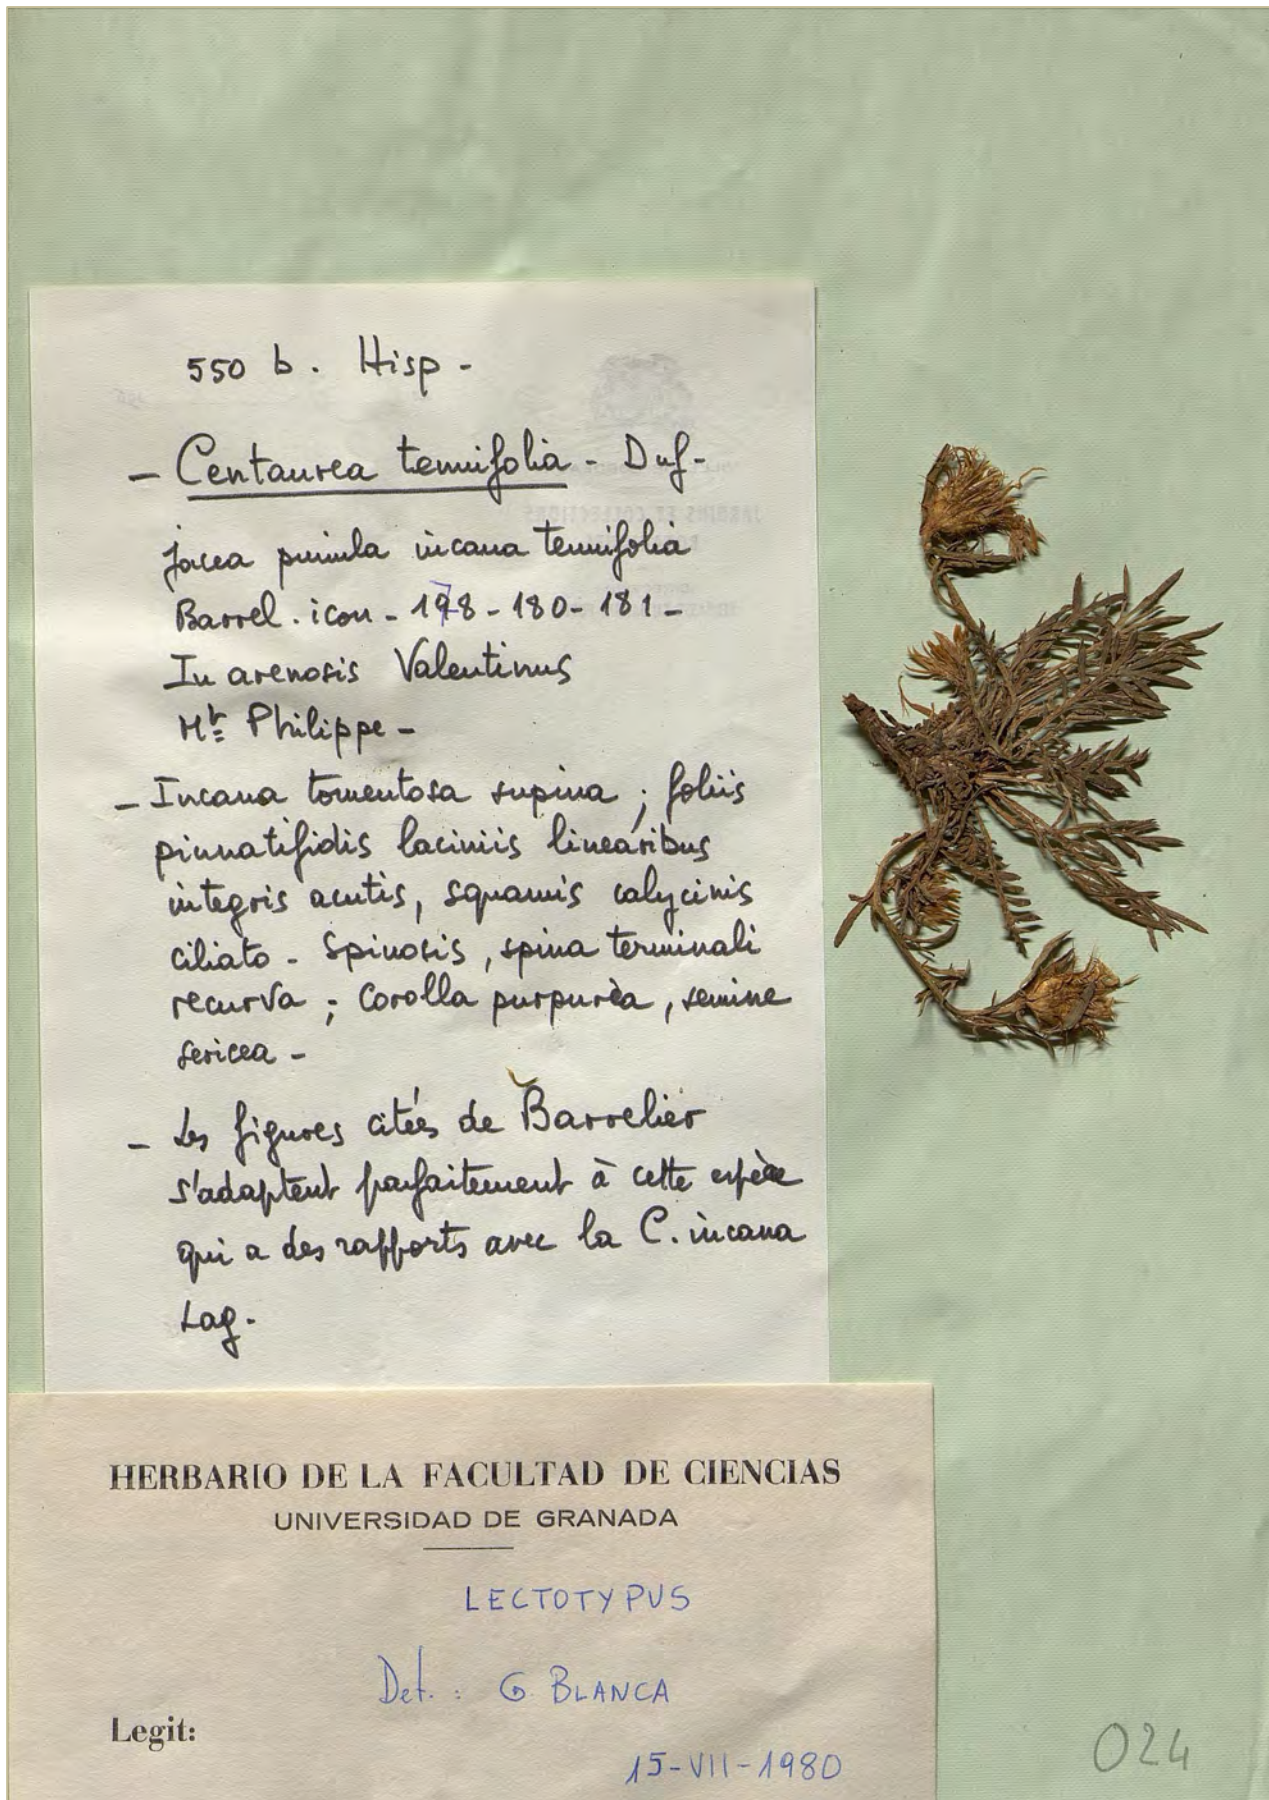 550 b. Hisp -
- Centaurea tenuifolia - Duf -
Jacea pumila incana tenuifolia
Barrel. icon - 178 - 180 - 181 -
In arenosis Valentinus
Mr Philippe -
- Incana tomentosa supina ; foliis
pinnatifidis laciniis linearibus
integris acutis, squamis calycinis
ciliato - spinosis, spina terminali
recurva ; corolla purpurea, semine
sericea -
- Les figures citées de Barrelier
s'adaptent parfaitement à cette espèce
qui a des rapports avec la C. incana
Lag.
HERBARIO DE LA FACULTAD DE CIENCIAS
UNIVERSIDAD DE GRANADA
LECTOTYPUS
Det. : G. BLANCA
Legit:
15-VII-1980
024